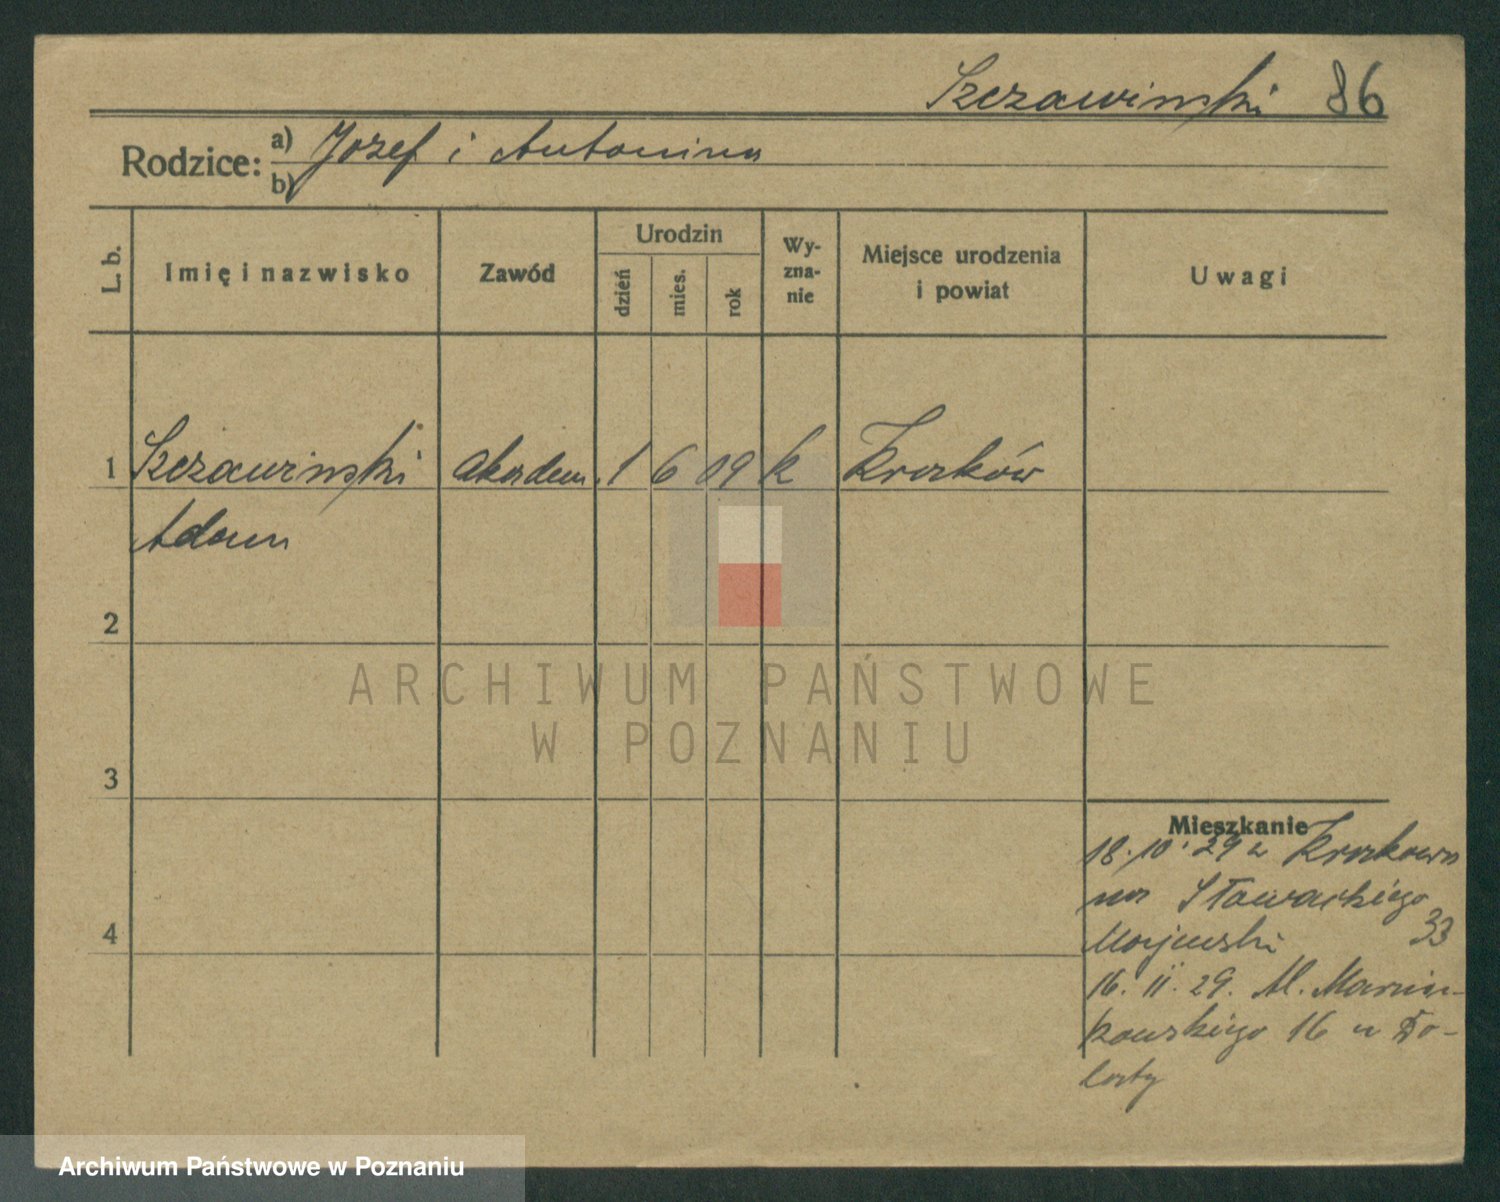 Szczawiński 86
Rodzice: a) Józef i Antonina
b)
L. b. Imię i nazwisko Zawód Urodzin dzień mies. rok Wyzna-nie Miejsce urodzenia i powiat Uwagi
1 Szczawiński akadem. 1 6 09 k Kraków
Adam
2
3
4
Mieszkanie
18.10.29 z Krakowa
na Słowackiego
Majewski 33
16. II. 29. Al. Marcin-
kowskiego 16 u
ARCHIWUM PAŃSTWOWE
W POZNANIU
Archiwum Państwowe w Poznaniu